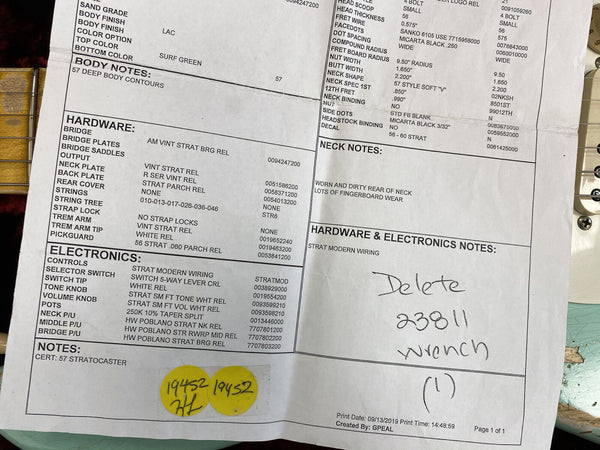 0094247200
SAND GRADE
BODY FINISH LAC
COLOR OPTION
TOP COLOR SURF GREEN
BOTTOM COLOR
BODY NOTES: 57
57 DEEP BODY CONTOURS
HARDWARE:
BRIDGE AM VINT STRAT BRG REL 0094247200
BRIDGE PLATES
BRIDGE SADDLES
OUTPUT VINT STRAT REL 0051586200
NECK PLATE R SER VINT REL 0058371200
BACK PLATE STRAT PARCH REL 0054013200
REAR COVER NONE NONE
STRINGS 010-013-017-026-036-046 STR6
STRING TREE
STRAP LOCK NO STRAP LOCKS NONE
TREM ARM VINT STRAT REL 0019652240
TREM ARM TIP WHITE REL 0019463200
PICKGUARD 56 STRAT .080 PARCH REL 0053841200
ELECTRONICS:
CONTROLS STRAT MODERN WIRING STRATMOD
SELECTOR SWITCH SWITCH 5-WAY LEVER CRL 0038929000
SWITCH TIP WHITE REL 0019554200
TONE KNOB STRAT SM FT TONE WHT REL 0093559210
VOLUME KNOB STRAT SM FT VOL WHT REL 0093598210
POTS 250K 10% TAPER SPLIT 0013446000
NECK P/U HW POBLANO STRAT NK REL 7707801200
MIDDLE P/U HW POBLANO STR RWRP MID REL 7707802200
BRIDGE P/U HW POBLANO STRAT BRG REL 7707803200
NOTES:
CERT: 57 STRATOCASTER
19452
HL
19452
HEAD SCOOP 4 BOLT 0091059260
HEAD THICKNESS SMALL 4 BOLT
FRET WIRE 0.575" SMALL
FACEDOTS SANKO 6105 USE 7715958000 56
DOT SPACING MICARTA BLACK .250 575
COMPOUND RADIUS WIDE 0078643000
FRET BOARD RADIUS 0060010000
NUT WIDTH 9.50" RADIUS WIDE
BUTT WIDTH 1.650"
NECK SHAPE 2.200" 9.50
NECK SPEC 1ST 57 STYLE SOFT "V" 1.650
12TH FRET .850" 2.200
NECK BINDING .990" 02NKSH
NUT NO 8501ST
SIDE DOTS STD FB BLANK 99012TH
HEADSTOCK BINDING MICARTA BLACK 3/32" N
DECAL NO 0083875000
56 - 60 STRAT 0059552000
N
0061425000
NECK NOTES:
WORN AND DIRTY REAR OF NECK
LOTS OF FINGERBOARD WEAR
HARDWARE & ELECTRONICS NOTES:
STRAT MODERN WIRING
Delete
23811
wrench
(1)
Print Date: 09/13/2019 Print Time: 14:48:59
Created By: GPEAL
Page 1 of 1